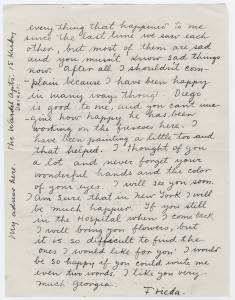 every thing that happened to me
since the last time we saw each
other, but most of them are sad
and you mustn't know sad things
now. After all I shouldn't com-
plain because I have been happy
in many ways though. Diego
is good to me, and you can't ima-
gine how happy he has been
working on the frescoes here. I
have been painting a little too and
that helped. I thought of you
a lot and never forget your
wonderful hands and the color
of your eyes. I will see you soon.
I am sure that in New York I will
be much happier. If you still
in the Hospital when I come back
I will bring you flowers, but
it is so difficult to find the
ones I would like for you. I would
be so happy if you could write me
even two words. I like you very
much Georgia.
Frieda.
My adress here The Wardell Apts. 15 Kirby
Detroit